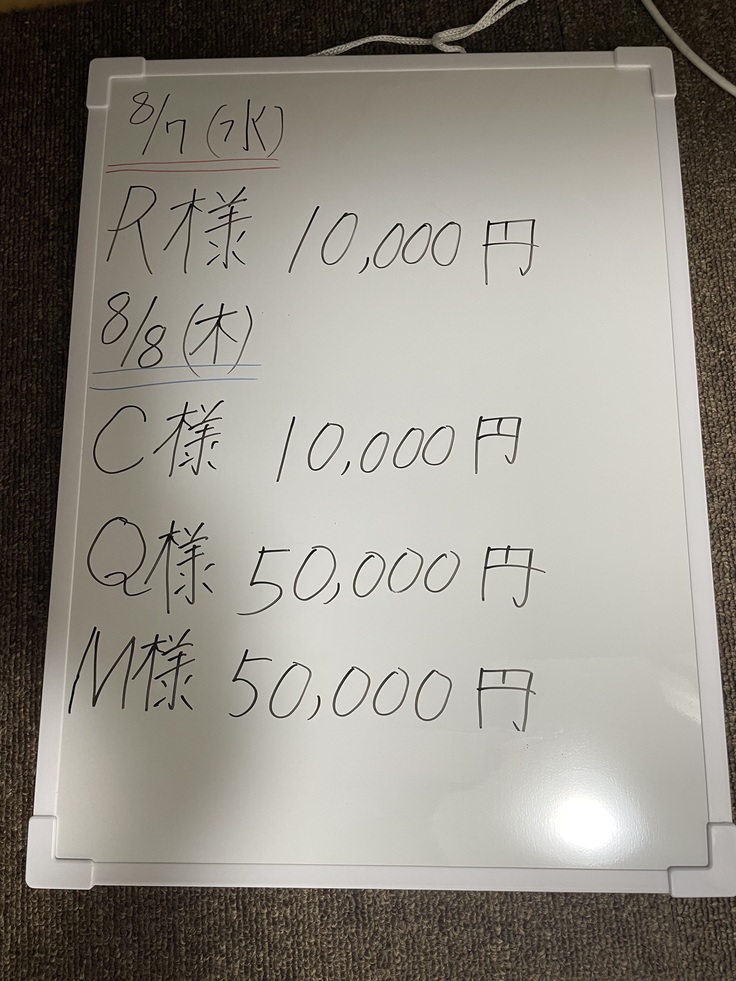 8/7(水)
R様 10,000円
8/8(木)
C様 10,000円
Q様 50,000円
M様 50,000円